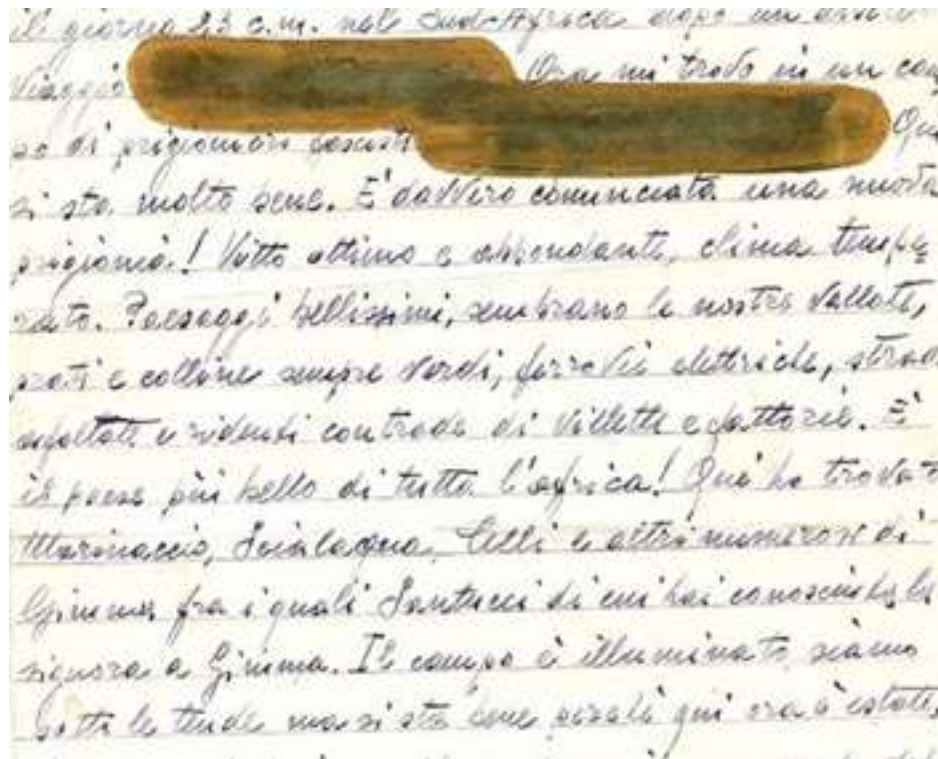 il giorno 23 c.m. nel Sud-Africa dopo un
viaggio Ora mi trovo in un cam
po di prigionieri fascisti Qui
si sta molto bene. E' davvero cominciata una nuova
prigionia! Vitto ottimo e abbondante, clima tempe
rato. Paesaggi bellissimi, sembrano le nostre vallate,
prati e colline sempre verdi, ferrovie elettriche, strade
asfaltate e ridenti contrade di villette e fattorie. E'
il paese più bello di tutta l'africa! Qui ho trovato
Marinaccio, Scialaqua Celli e altri numerosi di
Gimma fra i quali Santucci di cui hai conosciuto la
signora a Gimma. Il campo è illuminato siamo
sotto le tende ma si sta bene perchè qui ora è estate,